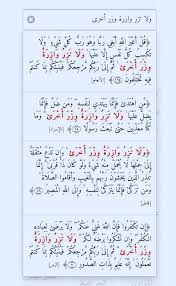 ولا تزر وازرة وزر أخرى
﴿قُلْ أَغَيْرَ اللَّهِ أَبْغِي رَبًّا وَهُوَ رَبُّ كُلِّ شَيْءٍ وَلَا
تَكْسِبُ كُلُّ نَفْسٍ إِلَّا عَلَيْهَا وَلَا تَزِرُ وَازِرَةٌ
وِزْرَ أُخْرَى ثُمَّ إِلَى رَبِّكُمْ مَرْجِعُكُمْ فَيُنَبِّئُكُمْ بِمَا كُنْتُمْ
فِيهِ تَخْتَلِفُونَ ﴾ [الأنعام]
﴿مَنِ اهْتَدَى فَإِنَّمَا يَهْتَدِي لِنَفْسِهِ وَمَنْ ضَلَّ فَإِنَّمَا
يَضِلُّ عَلَيْهَا وَلَا تَزِرُ وَازِرَةٌ وِزْرَ أُخْرَى وَمَا
كُنَّا مُعَذِّبِينَ حَتَّى نَبْعَثَ رَسُولًا ﴾ [الإسراء]
﴿وَلَا تَزِرُ وَازِرَةٌ وِزْرَ أُخْرَى وَإِنْ تَدْعُ مُثْقَلَةٌ
إِلَى حِمْلِهَا لَا يُحْمَلْ مِنْهُ شَيْءٌ وَلَوْ كَانَ ذَا قُرْبَى إِنَّمَا
تُنْذِرُ الَّذِينَ يَخْشَوْنَ رَبَّهُمْ بِالْغَيْبِ وَأَقَامُوا الصَّلَاةَ
وَمَنْ تَزَكَّى فَإِنَّمَا يَتَزَكَّى لِنَفْسِهِ وَإِلَى اللَّهِ الْمَصِيرُ ﴾
[فاطر]
﴿إِنْ تَكْفُرُوا فَإِنَّ اللَّهَ غَنِيٌّ عَنْكُمْ وَلَا يَرْضَى لِعِبَادِهِ
الْكُفْرَ وَإِنْ تَشْكُرُوا يَرْضَهُ لَكُمْ وَلَا تَزِرُ وَازِرَةٌ
وِزْرَ أُخْرَى ثُمَّ إِلَى رَبِّكُمْ مَرْجِعُكُمْ فَيُنَبِّئُكُمْ بِمَا كُنْتُمْ
تَعْمَلُونَ إِنَّهُ عَلِيمٌ بِذَاتِ الصُّدُورِ ﴾ [الزمر]